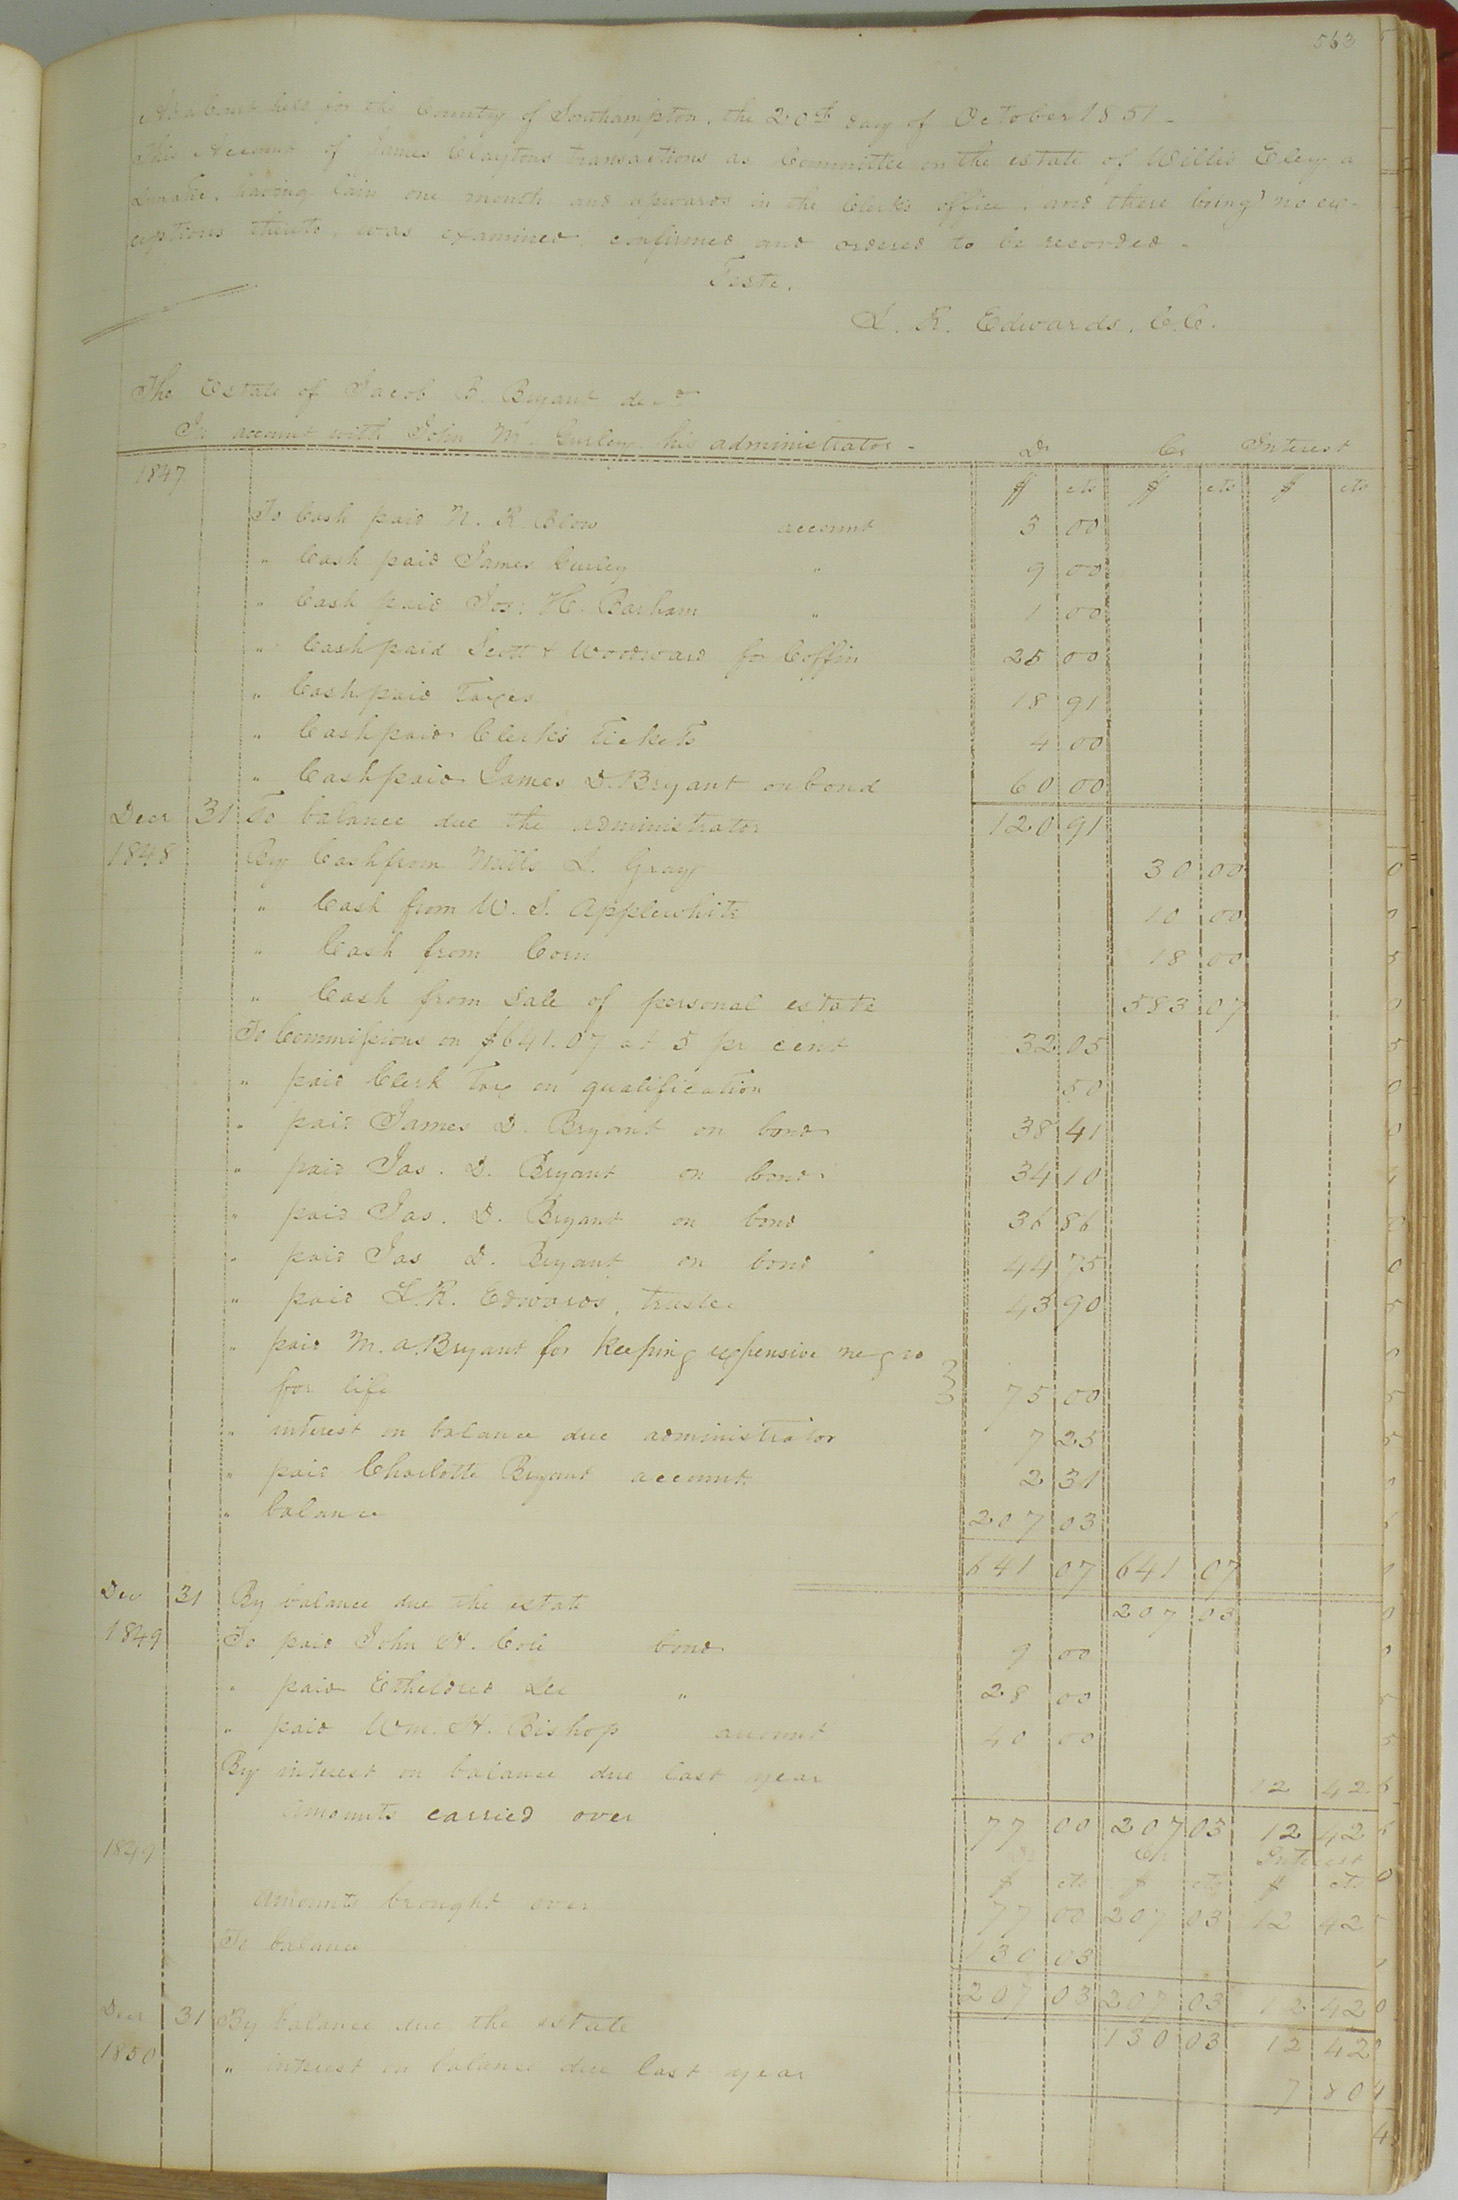 563
At a Court held for the County of Southampton, the 20th day of October 1851 -
This Account of James Claytons transactions as Committee on the estate of Willis Eley a
Lunatic, having lain one month and upwards in the Clerks office, and there being no ex-
ceptions thereto, was examined, confirmed and ordered to be recorded -
Teste,
L. R. Edwards, C.C.
The Estate of Jacob B. Bryant decd
In account with John M. Gurley his administrator - Dr Cr Interest
1847 $ cts $ cts $ cts
To Cash paid N. R. Blow account 3 00
" Cash paid James Gurley " 9 00
" Cash paid Jos: H. Barham " 1 00
" Cash paid Scott & Woodward for Coffin 25 00
" Cash paid Taxes 18 91
" Cash paid Clerks Tickets 4 00
" Cash paid James D. Bryant on bond 60 00
Decr 31 To balance due the administrator 120 91
1848 By Cash from Mills L. Gray 30 00
" Cash from W. S. Applewhite 10 00
" Cash from Corn 18 00
" Cash from Sale of personal estate 583 07
To Commissions on $641.07 at 5 pr cent 32 05
" paid Clerk Tax on qualification 50
" paid James D. Bryant on bond 38 41
" paid Jas. D. Bryant on bond 34 10
" paid Jas. D. Bryant on bond 36 86
" paid Jas D. Bryant on bond 44 75
" paid L. R. Edwards, trustee 43 90
" paid M. A. Bryant for Keeping expensive negro
for life 75 00
" interest on balance due administrator 7 25
" paid Charlotte Bryant account 2 31
" balance 207 03
641 07 641 07
Dec 31 By balance due the estate 207 03
1849 To paid John H. Cole bond 9 00
" paid Etheldred Lee " 28 00
" paid Wm. H. Bishop account 40 00
By interest on balance due last year 12 42
Amounts carried over 77 00 207 03 12 42
1849 Dr Cr Interest
$ cts $ cts $ cts
Amounts brought over 77 00 207 03 12 42
To balance 130 03
207 03 207 03 12 42
Decr 31 By balance due the estate 130 03 12 42
1850 " interest on balance due last year 7 80